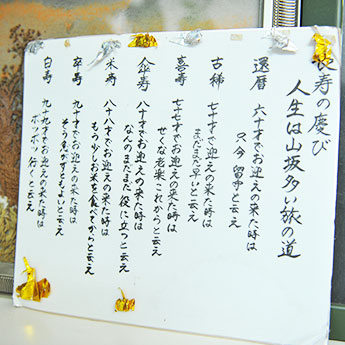 長寿の慶び
人生は山坂多い旅の道
還暦
六十才でお迎えの来た時は
只今留守と云え
古稀
七十才でお迎えの来た時は
まだまだ早いと云え
喜寿
七十七才でお迎えの来た時は
せくな老楽これからと云え
傘寿
八十才でお迎えの来た時は
なんのまだまだ役に立つと云え
米寿
八十八才でお迎えの来た時は
もう少しお米を食べてからと云え
卒寿
九十才でお迎えの来た時は
そう急がずともよいと云え
白寿
九十九才でお迎えの来た時は
ボツボツ行くと云え